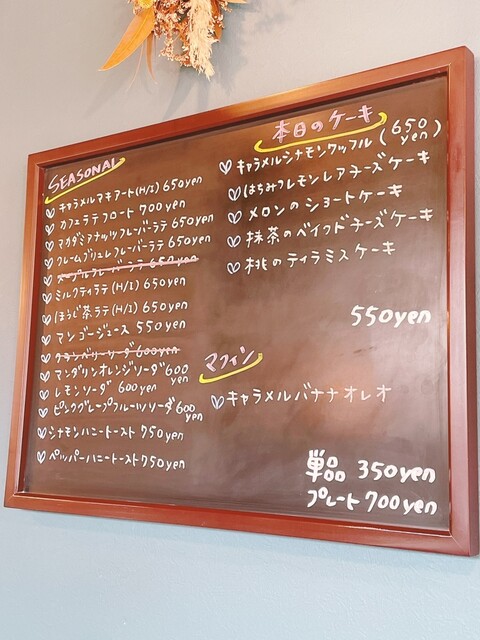 SEASONAL
キャラメルマキアート(H/I) 650yen
カフェラテフロート 700yen
マカダミアナッツフレーバーラテ 650yen
クレームブリュレフレーバーラテ 650yen
メープルフレーバーラテ 650yen
ミルクティラテ(H/I) 650yen
ほうじ茶ラテ(H/I) 650yen
マンゴージュース 550yen
クランベリーソーダ 600yen
マンダリンオレンジソーダ 600yen
レモンソーダ 600yen
ピンクグレープフルーツソーダ 600yen
シナモンハニートースト 750yen
ペッパーハニートースト 750yen
本日のケーキ
キャラメルシナモンワッフル(650yen)
はちみつレモンレアチーズケーキ
メロンのショートケーキ
抹茶のベイクドチーズケーキ
桃のティラミスケーキ
550yen
マフィン
キャラメルバナナオレオ
単品 350yen
プレート 700yen